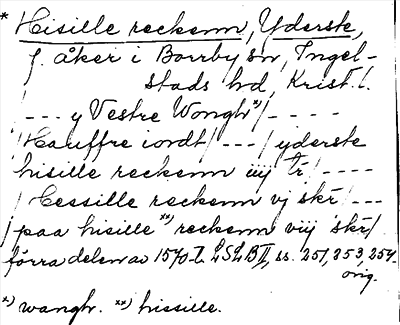 * Hisille reckenn, Yderste,
f. åker i Borrby sn, Ingel-
stads hd, Krist. l.
/--- y Vestre Wongh *)/----
/Hauffre iordt/---/yderste
hisille reckenn iiij tr/----
/Hessille reckenn vj skr/---
/paa hisille **) reckenn viij skr/
förra delen av 1570-t. LSLB II, ss. 251, 253, 254.
orig.
*) wangh. **) hissille.